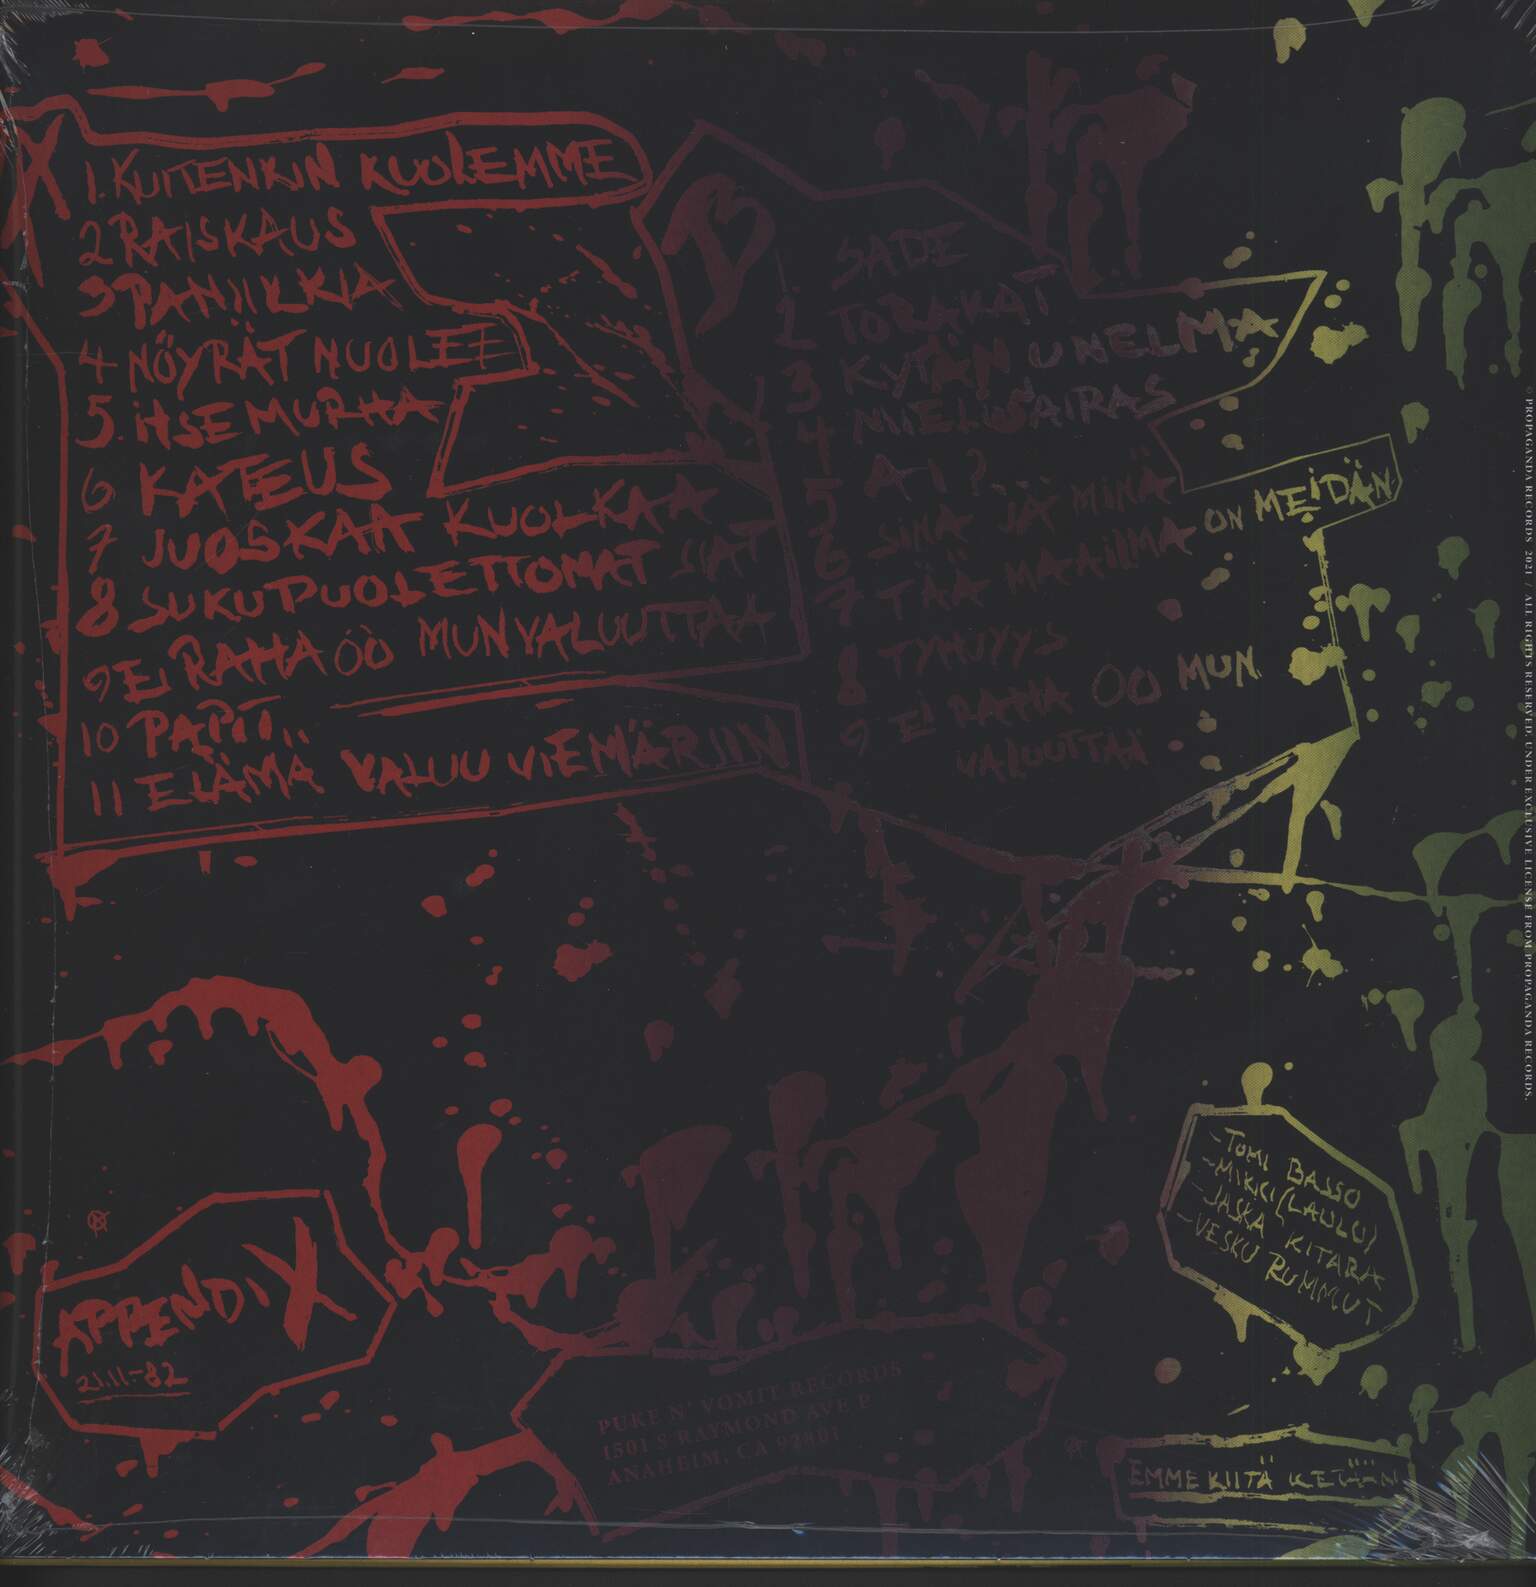 1. KUITENKIN KUOLEMME
2 RAISKAUS
3 PANIIKKIA
4 NÖYRÄT NUOLEE
5. ITSEMURHA
6 KATEUS
7 JUOSKAA KUOLKAA
8 SUKUPUOLETTOMAT SIAT
9 Ei RAHA OO MUN VALUUTTAA
10 PAPIT..
11 ELÄMÄ VALUU VIEMÄRIIN
B
1 SADE
2 TORAKAT
3 KYTÄN UNELMA
4 MIELISAIRAS
5 A-I?...
6 SINÄ JA MINÄ
7 TÄÄ MAAILMA ON MEIDÄN
8 TYHJYYS
9 EI RAHA OO MUN
VALUUTTAA
© PROPAGANDA RECORDS 2021 / ALL RIGHTS RESERVED. UNDER EXCLUSIVE LICENSE FROM PROPAGANDA RECORDS.
APPENDIX
21.11-82
PUKE N' VOMIT RECORDS
1501 S RAYMOND AVE P
ANAHEIM, CA 92801
-TOMI BASSO
-MIKKI (LAULU)
-JASKA KITARA
-VESKU RUMMUT
EMME KIITÄ KETÄÄN